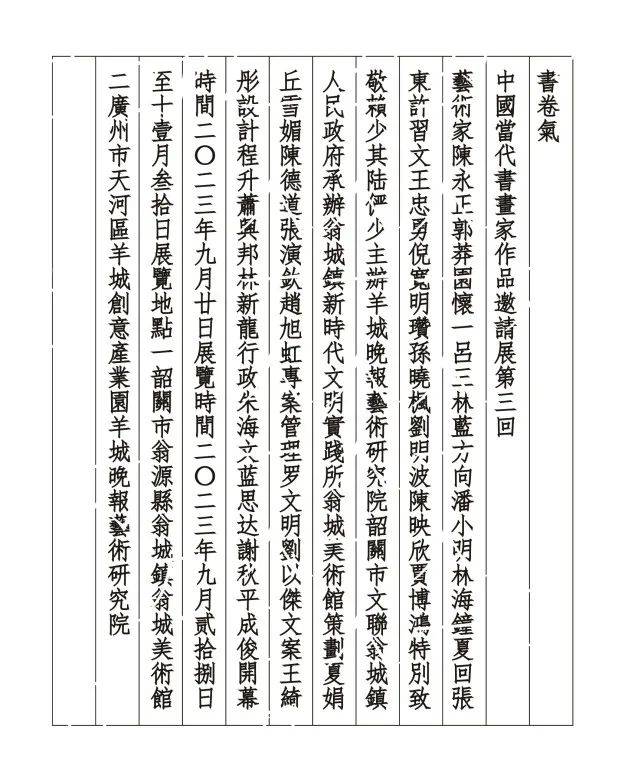 書卷氣
中國當代書畫家作品邀請展第三回
藝術家陳永正郭莽園懷一呂三林藍方向潘小明林海鐘夏回張
東許習文王忠勇倪寬明瓚孫曉楓劉明波陳映欣賈博鴻特別致
敬賴少其陆俨少主辦羊城晚報藝術研究院韶關市文聯翁城鎮
人民政府承辦翁城鎮新時代文明實踐所翁城美術館策劃夏娟
丘雪媚陳德道張演欽趙旭虹專案管理罗文明劉以傑文案王綺
彤設計程升蕭與邦林新龍行政朱海文蓝思达謝秋平成俊開幕
時間二〇二三年九月廿日展覽時間二〇二三年九月貳拾捌日
至十壹月叁拾日展覽地點一韶關市翁源縣翁城鎮翁城美術館
二廣州市天河區羊城創意產業園羊城晚報藝術研究院